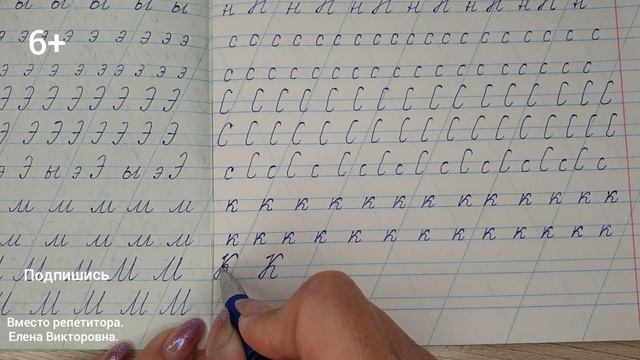 ы ы ы ы ы
э э э э э э э э э
э э э э э э э э э
Э Э Э Э Э Э Э Э
Э Э Э Э Э Э Э Э
э Э ы э Э ы э Э
м м м м м
м м м м м
М М М М М
М М М М М
н Н н Н н Н н Н н Н н Н н Н н
с с с с с с с с с с с с с с с с с с с
с с с с с с с с с с с с с с с с с с с
С С С С С С С С С С С С С С С С С С С
С С С С С С С С С С С С С С С С С С С
с С с С с С с С с С с С с С с С с С с
к к к к к к к к к к к к
к к к к к к к к к к к к к
К К
6+
Подпишись
Вместо репетитора.
Елена Викторовна.